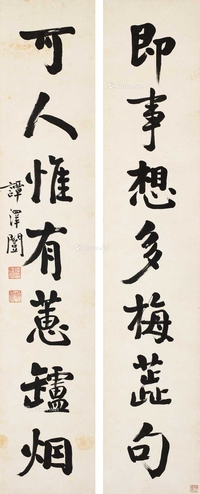 即事想多梅蕋句
可人惟有蕙罏烟
譚澤闓